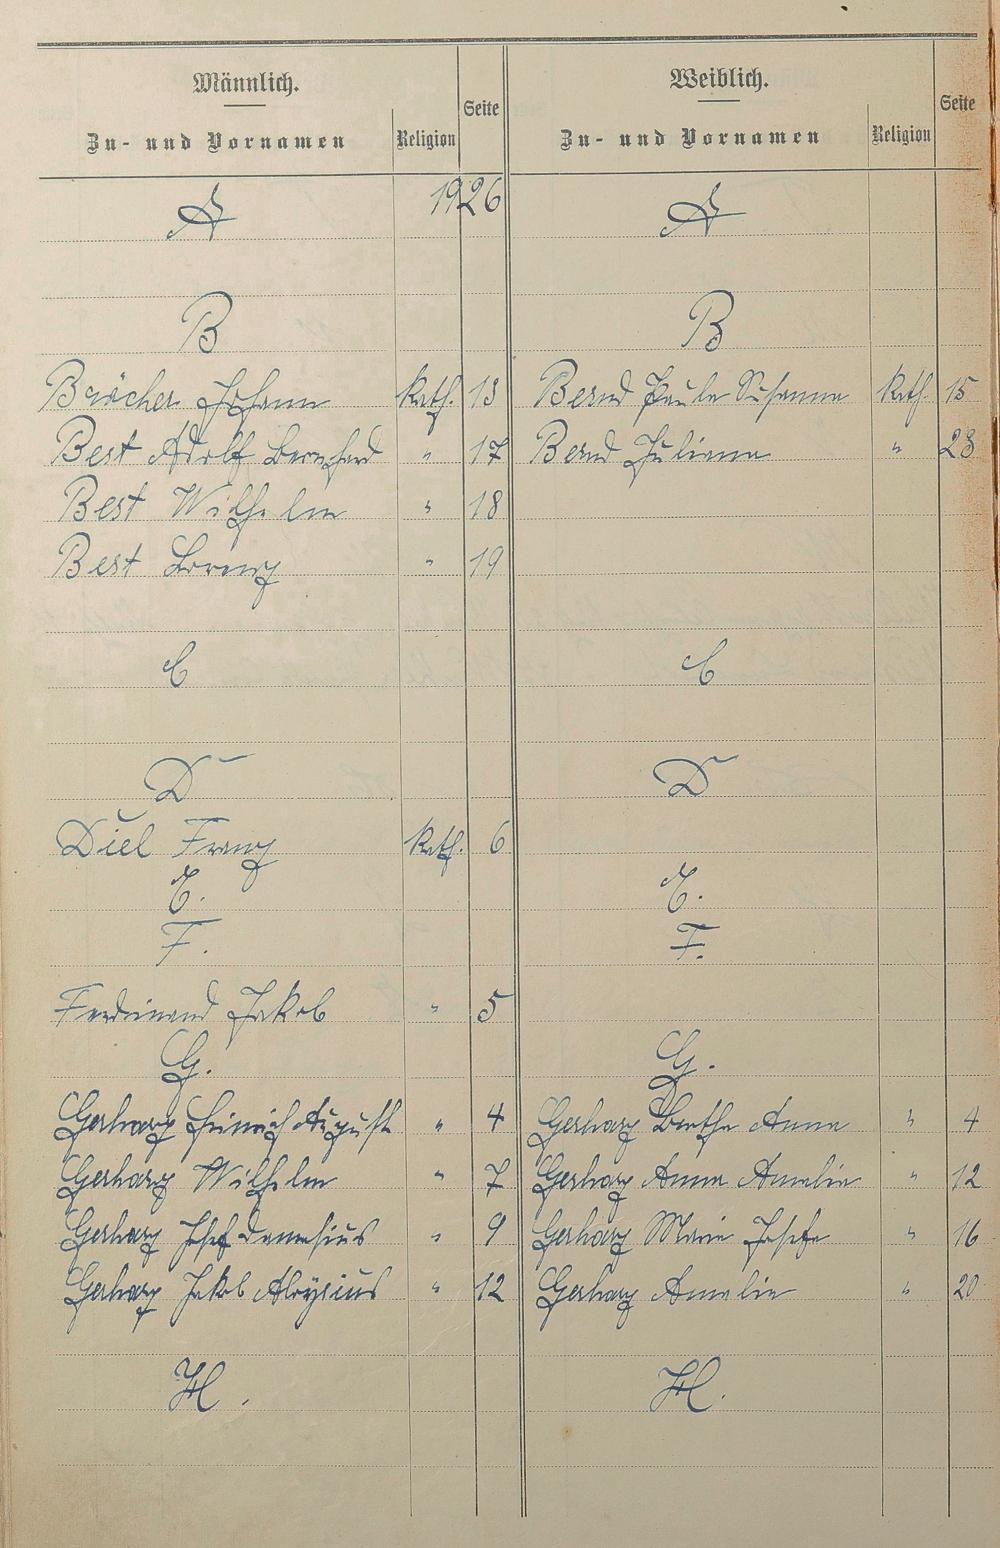 Männlich. Weiblich.
Zu- und Vornamen Religion Seite Zu- und Vornamen Religion Seite
1926
A A
B B
Bröcher Johann Kath. 13 Bernd Paula Susanna Kath. 15
Best Adolf Bernhard " 17 Bernd Juliana " 23
Best Wilhelm " 18
Best Lorenz " 19
C C
D D
Diel Franz Kath. 6
E. E.
F. F.
Ferdinand Jakob " 5
G. G.
Gerharz Heinrich August " 4 Gerharz Bertha Anna " 4
Gerharz Wilhelm " 7 Gerharz Anna Amalia " 12
Gerharz Josef Damasius " 9 Gerharz Maria Josefa " 16
Gerharz Jakob Aloysius " 12 Gerharz Amalia " 20
H. H.